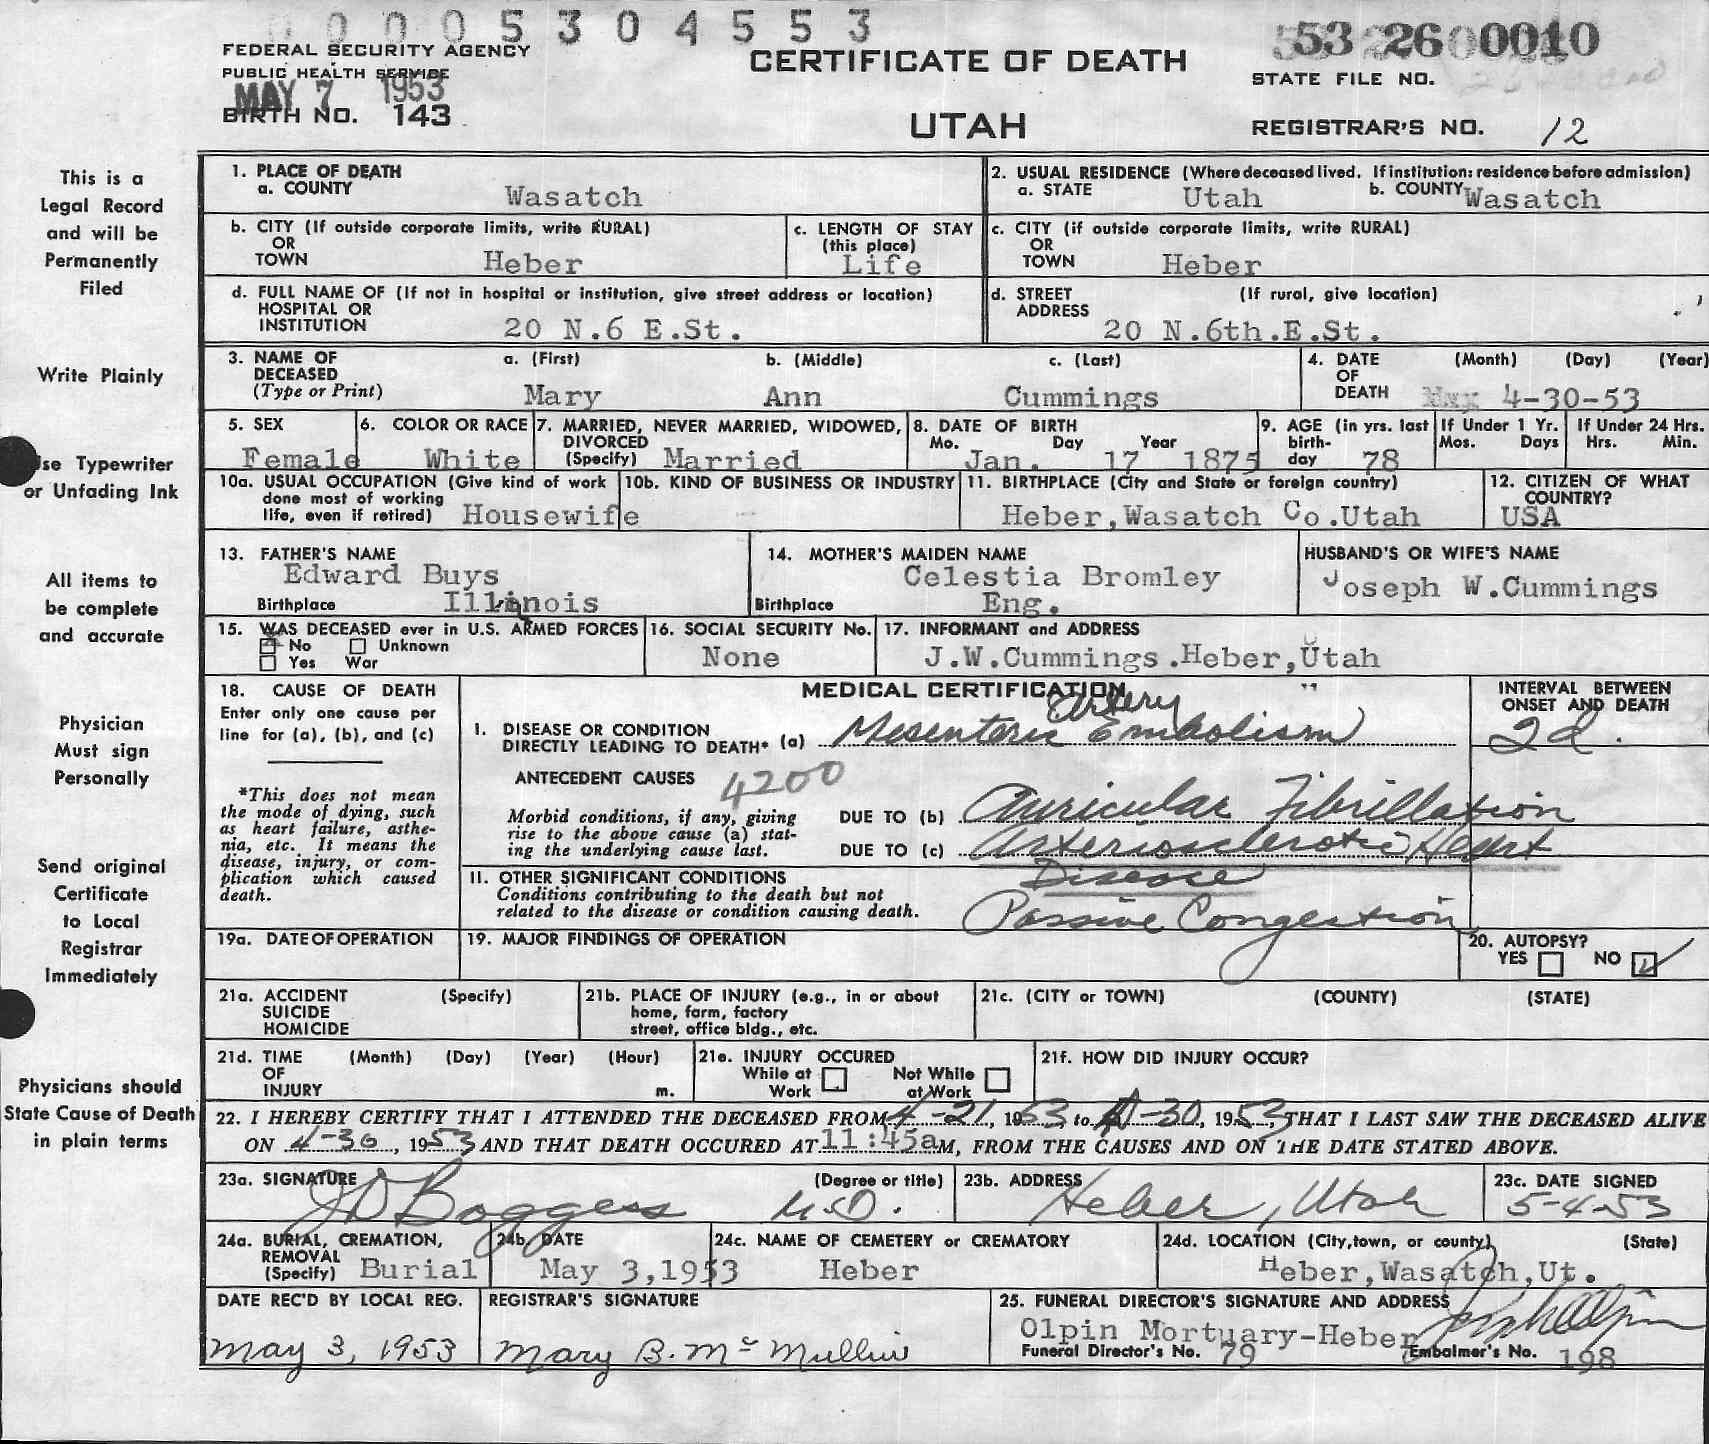 0 0 0 0 5 3 0 4 5 5 3
FEDERAL SECURITY AGENCY
PUBLIC HEALTH SERVICE
MAY 7 1953
BIRTH NO. 143
CERTIFICATE OF DEATH
UTAH
53 26 0010
STATE FILE NO.
REGISTRAR'S NO. 12
This is a
Legal Record
and will be
Permanently
Filed
Write Plainly
Use Typewriter
or Unfading Ink
All items to
be complete
and accurate
Physician
Must sign
Personally
Send original
Certificate
to Local
Registrar
Immediately
Physicians should
State Cause of Death
in plain terms
1. PLACE OF DEATH
a. COUNTY Wasatch
2. USUAL RESIDENCE (Where deceased lived. If institution: residence before admission)
a. STATE Utah b. COUNTY Wasatch
b. CITY (If outside corporate limits, write RURAL)
OR
TOWN Heber
c. LENGTH OF STAY
(this place)
Life
c. CITY (if outside corporate limits, write RURAL)
OR
TOWN Heber
d. FULL NAME OF (If not in hospital or institution, give street address or location)
HOSPITAL OR
INSTITUTION 20 N.6 E.St.
d. STREET (If rural, give location)
ADDRESS
20 N.6th.E.St.
3. NAME OF
DECEASED
(Type or Print)
a. (First) b. (Middle) c. (Last)
Mary Ann Cummings
4. DATE (Month) (Day) (Year)
OF
DEATH 4-30-53
5. SEX
Female
6. COLOR OR RACE
White
7. MARRIED, NEVER MARRIED, WIDOWED,
DIVORCED
(Specify) Married
8. DATE OF BIRTH
Mo. Day Year
Jan. 17 1875
9. AGE (in yrs. last
birth-
day 78
If Under 1 Yr.
Mos. Days
If Under 24 Hrs.
Hrs. Min.
10a. USUAL OCCUPATION (Give kind of work
done most of working
life, even if retired) Housewife
10b. KIND OF BUSINESS OR INDUSTRY
11. BIRTHPLACE (City and State or foreign country)
Heber,Wasatch Co.Utah
12. CITIZEN OF WHAT
COUNTRY?
USA
13. FATHER'S NAME
Edward Buys
Birthplace Illinois
14. MOTHER'S MAIDEN NAME
Celestia Bromley
Birthplace Eng.
HUSBAND'S OR WIFE'S NAME
Joseph W.Cummings
15. WAS DECEASED ever in U.S. ARMED FORCES
No Unknown
Yes War
16. SOCIAL SECURITY No.
None
17. INFORMANT and ADDRESS
J.W.Cummings.Heber,Utah
18. CAUSE OF DEATH
Enter only one cause per
line for (a), (b), and (c)
*This does not mean
the mode of dying, such
as heart failure, asthe-
nia, etc. It means the
disease, injury, or com-
plication which caused
death.
MEDICAL CERTIFICATION
INTERVAL BETWEEN
ONSET AND DEATH
I. DISEASE OR CONDITION
DIRECTLY LEADING TO DEATH* (a) Mesenteric artery Embolism 2d.
ANTECEDENT CAUSES 4200
Morbid conditions, if any, giving
rise to the above cause (a) stat-
ing the underlying cause last.
DUE TO (b) Auricular Fibrillation
DUE TO (c) Arteriosclerotic Heart
Disease
II. OTHER SIGNIFICANT CONDITIONS
Conditions contributing to the death but not
related to the disease or condition causing death.
Passive Congestion
19a. DATE OF OPERATION
19. MAJOR FINDINGS OF OPERATION
20. AUTOPSY?
YES NO
21a. ACCIDENT (Specify)
SUICIDE
HOMICIDE
21b. PLACE OF INJURY (e.g., in or about
home, farm, factory
street, office bldg., etc.
21c. (CITY or TOWN) (COUNTY) (STATE)
21d. TIME (Month) (Day) (Year) (Hour)
OF
INJURY m.
21e. INJURY OCCURED
While at Not While
Work at Work
21f. HOW DID INJURY OCCUR?
22. I HEREBY CERTIFY THAT I ATTENDED THE DECEASED FROM 4-21, 1953 to 4-30, 1953, THAT I LAST SAW THE DECEASED ALIVE
ON 4-30, 1953 AND THAT DEATH OCCURED AT 11:45a M, FROM THE CAUSES AND ON THE DATE STATED ABOVE.
23a. SIGNATURE (Degree or title)
J D Boggess M.D.
23b. ADDRESS
Heber, Utah
23c. DATE SIGNED
5-4-53
24a. BURIAL, CREMATION,
REMOVAL
(Specify) Burial
24b. DATE
May 3,1953
24c. NAME OF CEMETERY or CREMATORY
Heber
24d. LOCATION (City,town, or county) (State)
Heber,Wasatch,Ut.
DATE REC'D BY LOCAL REG.
May 3, 1953
REGISTRAR'S SIGNATURE
Mary B. McMullin
25. FUNERAL DIRECTOR'S SIGNATURE AND ADDRESS
Olpin Mortuary-Heber
Funeral Director's No. 79 Embalmer's No. 198